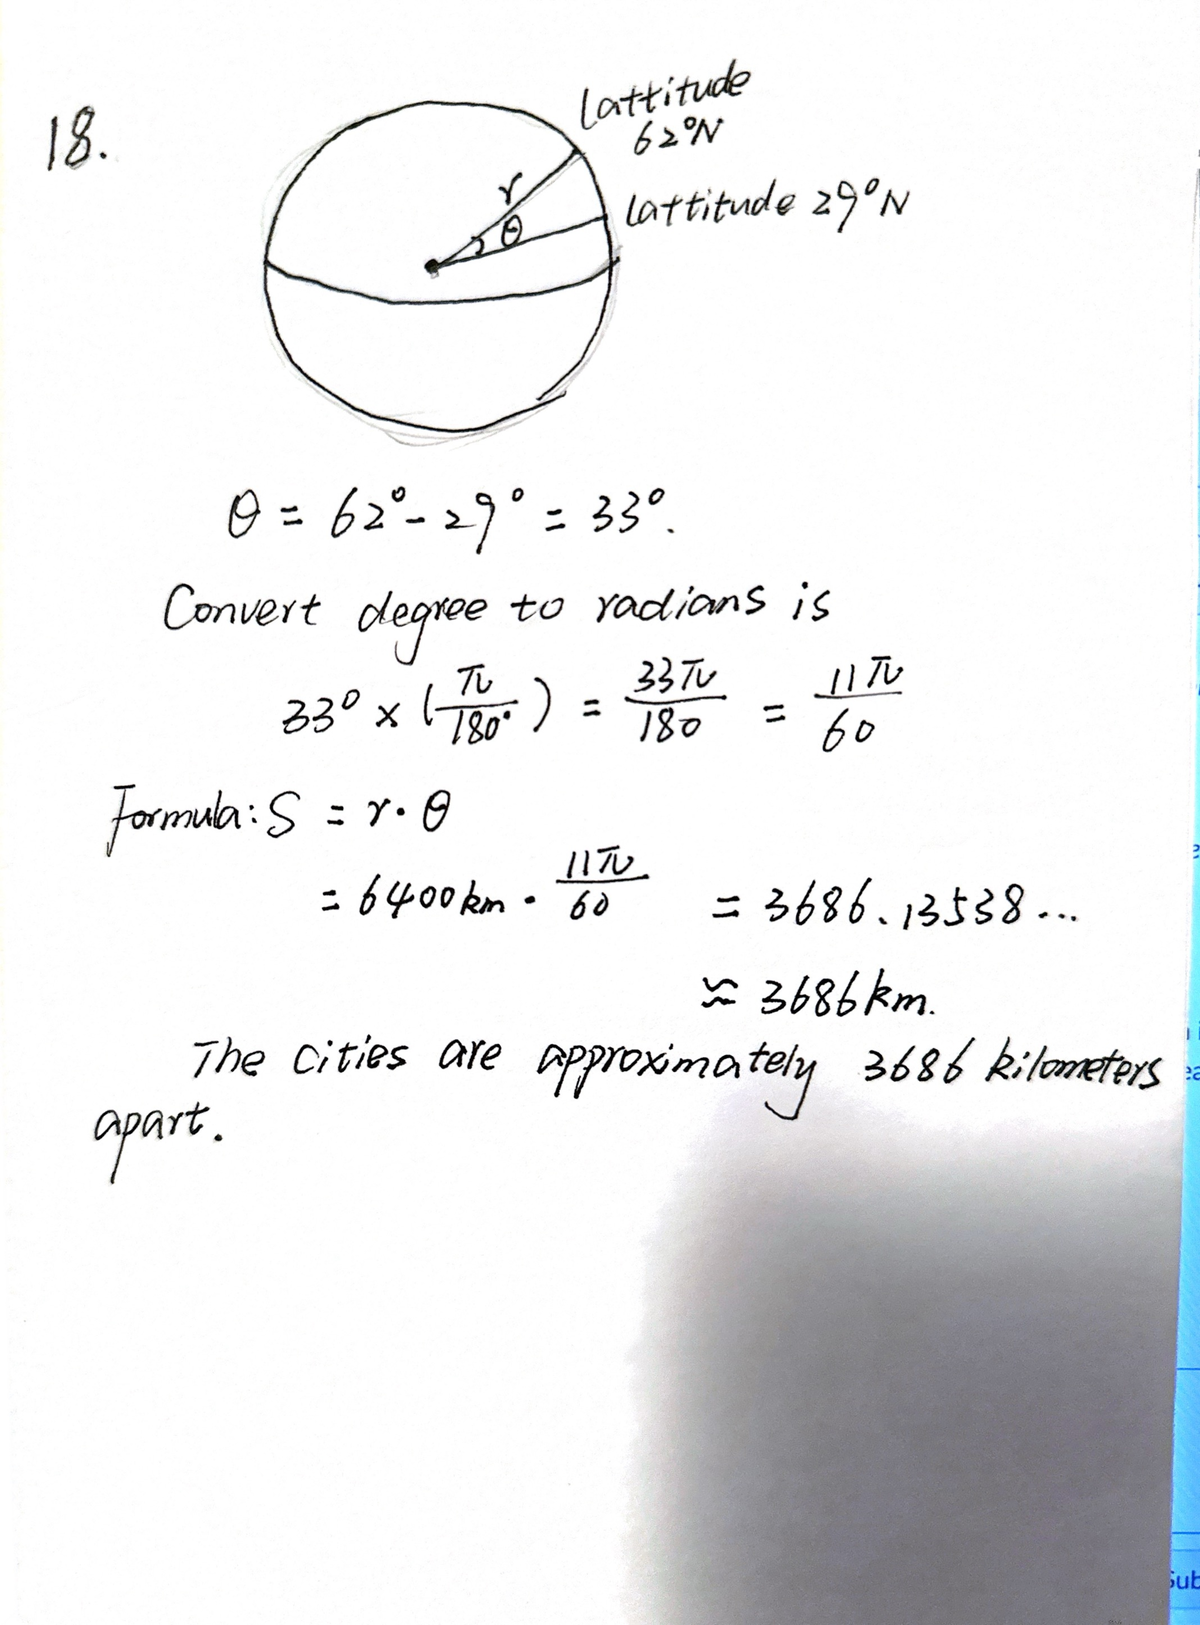 18.
Lattitude
62°N
r
θ
Lattitude 29°N
θ = 62° - 29° = 33°.
Convert degree to radians is
33° × (π/180°) = 33π/180 = 11π/60
Formula: S = r · θ
= 6400 km · 11π/60 = 3686.13538...
≈ 3686 km.
The cities are approximately 3686 kilometers
apart.
Sub